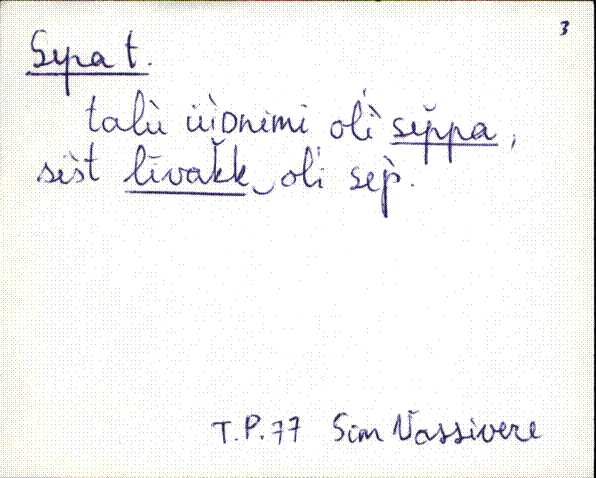 3
Sepa t.
talù üìᴅnimi olì sep̆pa,
sèst līvak̆k‿olì sep̀.
T.P.77 Sim Vassivere